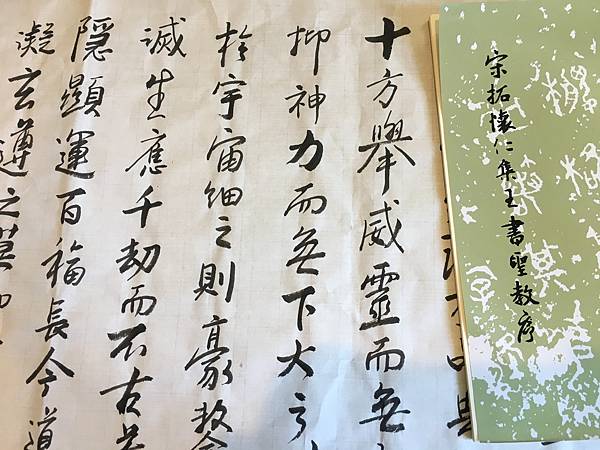 宋拓懷仁集王書聖教序
十方舉威靈而無
抑神力而無下大之
於宇宙細之則豪
滅生應千劫而不古
隱顯運百福長今道
凝玄遵之莫